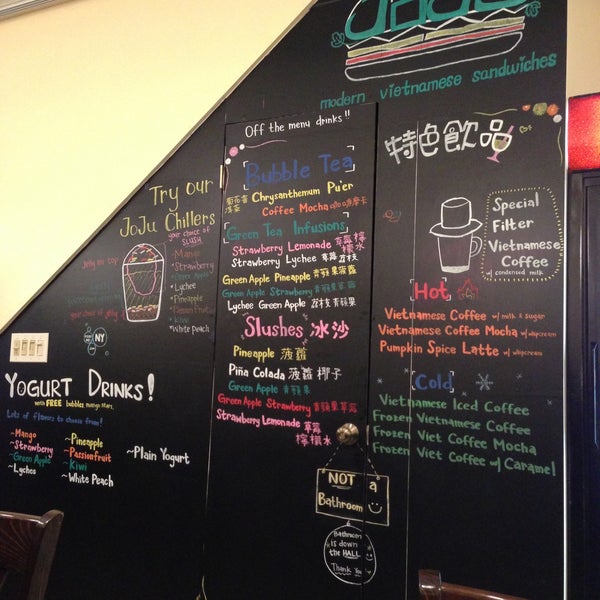 modern vietnamese sandwiches
Off the menu drinks!!
Bubble Tea
Chrysanthemum Pu'er
Coffee Mocha
Green Tea Infusions
Strawberry Lemonade 草莓檸檬水
Strawberry Lychee 草莓荔枝
Green Apple Pineapple 青蘋果菠蘿
Green Apple Strawberry 青蘋果草莓
Lychee Green Apple 荔枝青蘋果
Slushes 冰沙
Pineapple 菠蘿
Piña Colada 菠蘿椰子
Green Apple 青蘋果
Green Apple Strawberry 青蘋果草莓
Strawberry Lemonade 草莓
檸檬水
NOT a
Bathroom
Bathroom
is down
the HALL
Thank You
特色飲品
Special
Filter
Vietnamese
Coffee
w/ condensed milk
Hot
Vietnamese Coffee w/ milk & sugar
Vietnamese Coffee Mocha w/ whipcream
Pumpkin Spice Latte w/ whipcream
Cold
Vietnamese Iced Coffee
Frozen Vietnamese Coffee
Frozen Viet Coffee Mocha
Frozen Viet Coffee w/ Caramel
Try our
JoJu Chillers
your choice of
SLUSH
~Mango
~Strawberry
~Green Apple
~Lychee
~Pineapple
~Passion Fruit
~Kiwi
~White Peach
NY
Yogurt Drinks!
with FREE bubbles, mango stars,
Lots of flavors to choose from!
~Mango
~Strawberry
~Green Apple
~Lychee
~Pineapple
~Passionfruit
~Kiwi
~White Peach
~Plain Yogurt